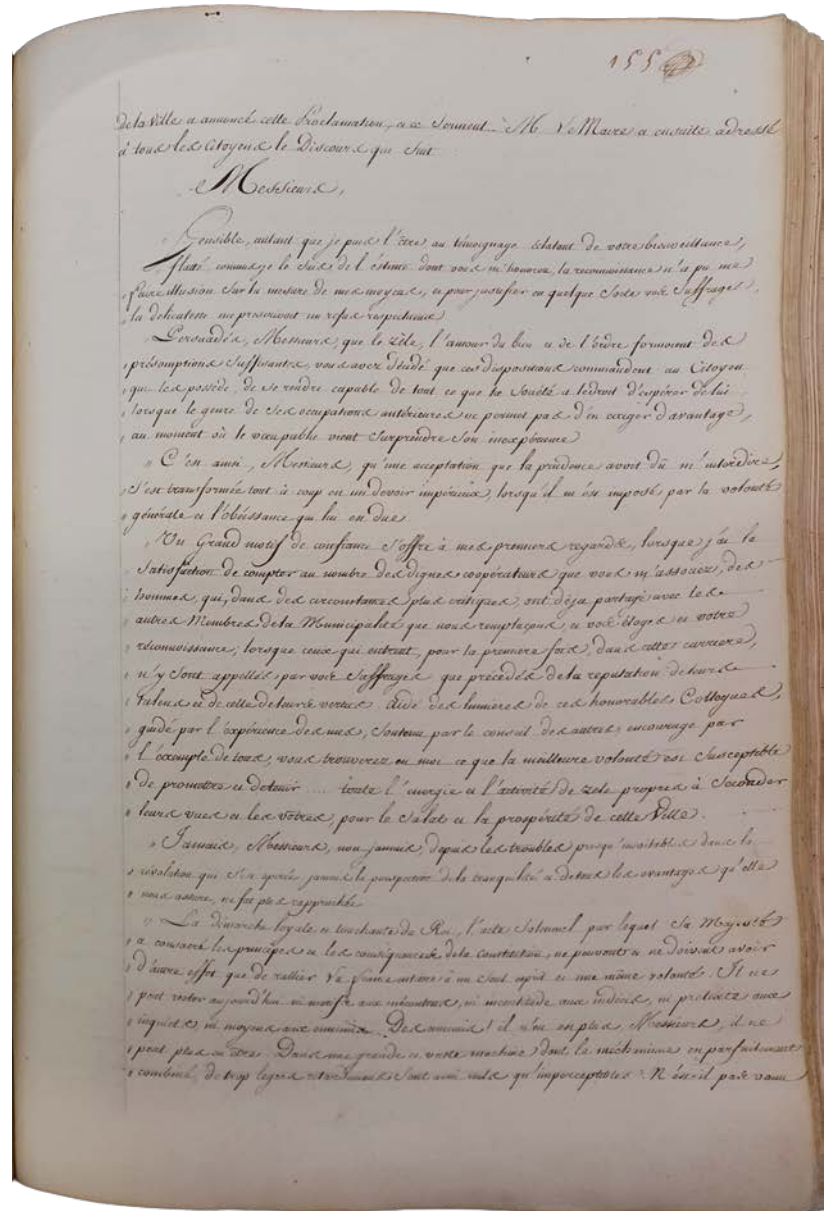 155
de la Ville a annoncé cette Proclamation, et ce Serment. M. Le Maire a ensuite adressé
à tous les Citoyens le Discours qui suit
Messieurs,
Sensible, autant que je puis l'être au témoignage éclatant de votre bienveillance,
flatté comme je le suis de l'éstime dont vous m'honorez, la reconnaissance n'a pu me
faire illusion sur la mesure de mes moyens, et pour justifier en quelque sorte vos Suffrages,
la délicatesse me prescrivoit un refus respectueux
Persuadés, Messieurs, que le zèle, l'amour du bien et de l'ordre formoient des
présomptions suffisantes, vous avez décidé que ces dispositions commandent au Citoyen
qui les possède, de se rendre capable de tout ce que la Société a le droit d'espérer de lui
lorsque le genre de ses occupations antérieures ne permet pas d'en exiger d'avantage,
au moment où le voeu public vient surprendre son inexpérience
" C'est ainsi, Messieurs, qu'une acceptation que la prudence avoit dû m'interdire,
s'est transformée tout à coup en un devoir impérieux, lorsqu'il m'est imposé par la volonté
générale et l'obéissance qui lui est due
" Un Grand motif de confiance s'offre à mes premiers regards, lorsque j'ai la
Satisfaction de compter au nombre des dignes coopérateurs que vous m'associez, des
hommes, qui, dans des circonstances plus critiques, ont déja partagé avec les
autres Membres de la Municipalité que nous remplaçons, et vos éloges et votre
reconnoissance; lorsque ceux qui entrent, pour la premiere fois, dans cette carriere,
n'y sont appellés par vos Suffrages que précédés de la reputation de leurs
talens et de celle de leurs vertus. Aidé des lumieres de ces honorables Collegues,
guidé par l'expérience des uns, soutenu par le conseil des autres, encouragé par
l'éxemple de tous, vous trouverez en moi ce que la meilleure volonté est susceptible
de promettre et de tenir .... toute l'énergie et l'activité de zele propres à seconder
leurs vues et les vôtres, pour le Salut et la prospérité de cette Ville.
" Jamais, Messieurs, non jamais, depuis les troubles presqu'inévitables dans la
révolution qui s'est opérée jamais la perspective de la tranquilité et de tous les avantages qu'elle
nous assure, ne fut plus rapprochée
" La démarche loyale et touchante du Roi, l'acte Solennel par lequel Sa Majesté
a consacré les principes et les conséquences de la constitution, ne peuvent et ne doivent avoir
d'autre effet que de rallier la france entiere à un seul esprit et une même volonté. Il ne
peut rester aujourd'hui ni motifs aux mécontens, ni incertitude aux indécis, ni prétexte aux
inquiets, ni moyens aux ennemis. Des ennemis! il n'en est plus, Messieurs, il ne
peut plus en être. Dans une grande et vaste machine dont le méchanisme est parfaitement
combiné, de trop legers sont aussi nuls qu'imperceptibles. N'est-il pas venu